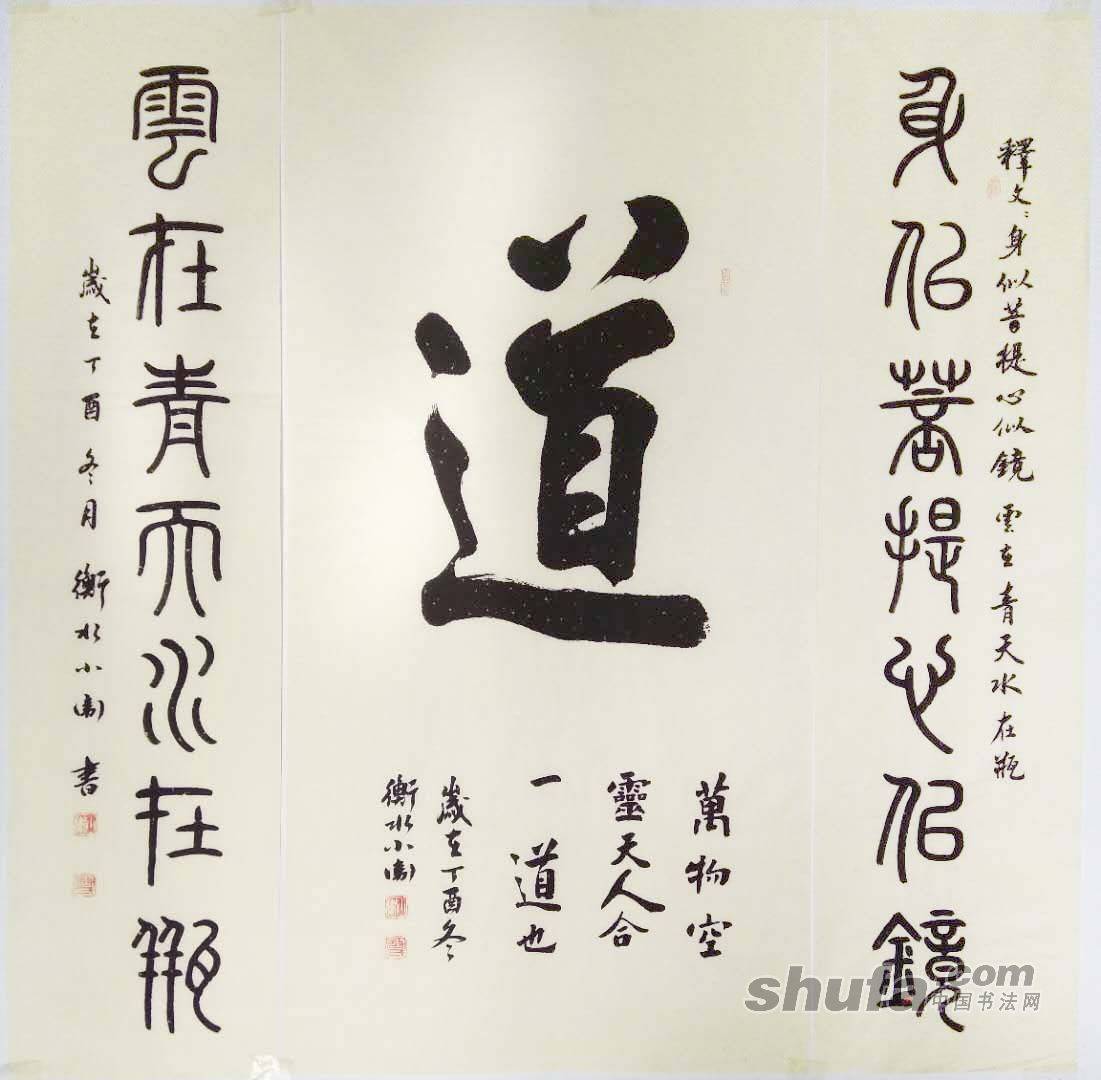 身佀菩提心佀鏡
釋文：身似菩提心似鏡 雲在青天水在瓶
道
萬物空
靈天人合
一道也
歲在丁酉冬
衡水小衛
雲在青天水在瓶
歲在丁酉冬月 衡水小衛 書
shufa.com
中国书法网